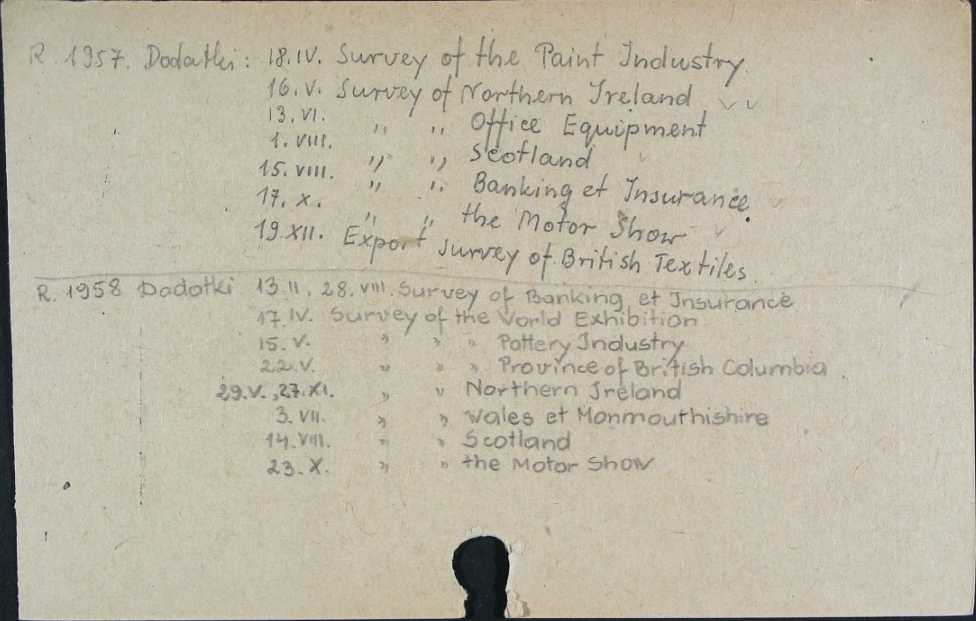 R. 1957. Dodatki: 18.IV. Survey of the Paint Industry.
16.V. Survey of Northern Ireland
13.VI. " " Office Equipment
1.VIII. " " Scotland
15.VIII. " " Banking et Insurance
17.X. " " the Motor Show
19.XII. Export survey of British Textiles.
R. 1958 Dodotki 13.II, 28.VIII. Survey of Banking et Insurance
17.IV. Survey of the World Exhibition
15.V. " " " Pottery Industry
22.V. " " " Province of British Columbia
29.V., 27.XI. " " Northern Ireland
3.VII. " " Wales et Monmouthishire
14.VIII. " " Scotland
23.X. " " the Motor Show